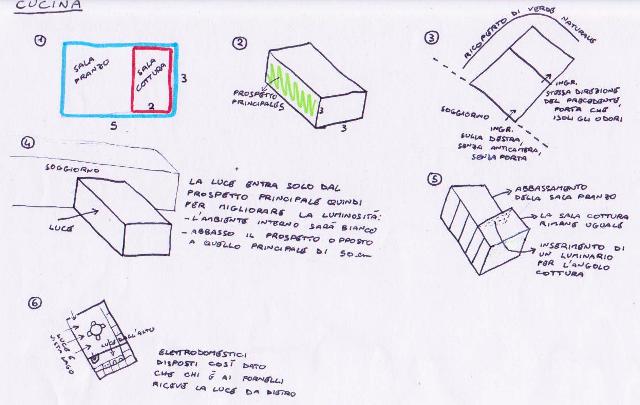 CUCINA
1
SALA
PRANZO
SALA
COTTURA
3
2
5
2
PROSPETTO
PRINCIPALE
5
3
3
3
RICOPERTO DI VERDE NATURALE
INGR.
STESSA DIREZIONE
DEL PRECEDENTE,
PORTA CHE
ISOLI GLI ODORI
SOGGIORNO
INGR.
SULLA DESTRA,
SENZA ANTICAMERA,
SENZA PORTA
4
SOGGIORNO
LUCE
LA LUCE ENTRA SOLO DAL
PROSPETTO PRINCIPALE QUINDI
PER MIGLIORARE LA LUMINOSITÀ:
- L'AMBIENTE INTERNO SARÀ BIANCO
- ABBASSO IL PROSPETTO OPPOSTO
A QUELLO PRINCIPALE DI 50 cm
5
ABBASSAMENTO
DELLA SALA PRANZO
LA SALA COTTURA
RIMANE UGUALE
INSERIMENTO DI
UN LUMINARIO
PER L'ANGOLO
COTTURA
6
LUCE E
VISTA LAGO
LUCE DALL'ALTO
ELETTRODOMESTICI
DISPOSTI COSÌ DATO
CHE CHI È AI FORNELLI
RICEVE LA LUCE DA DIETRO